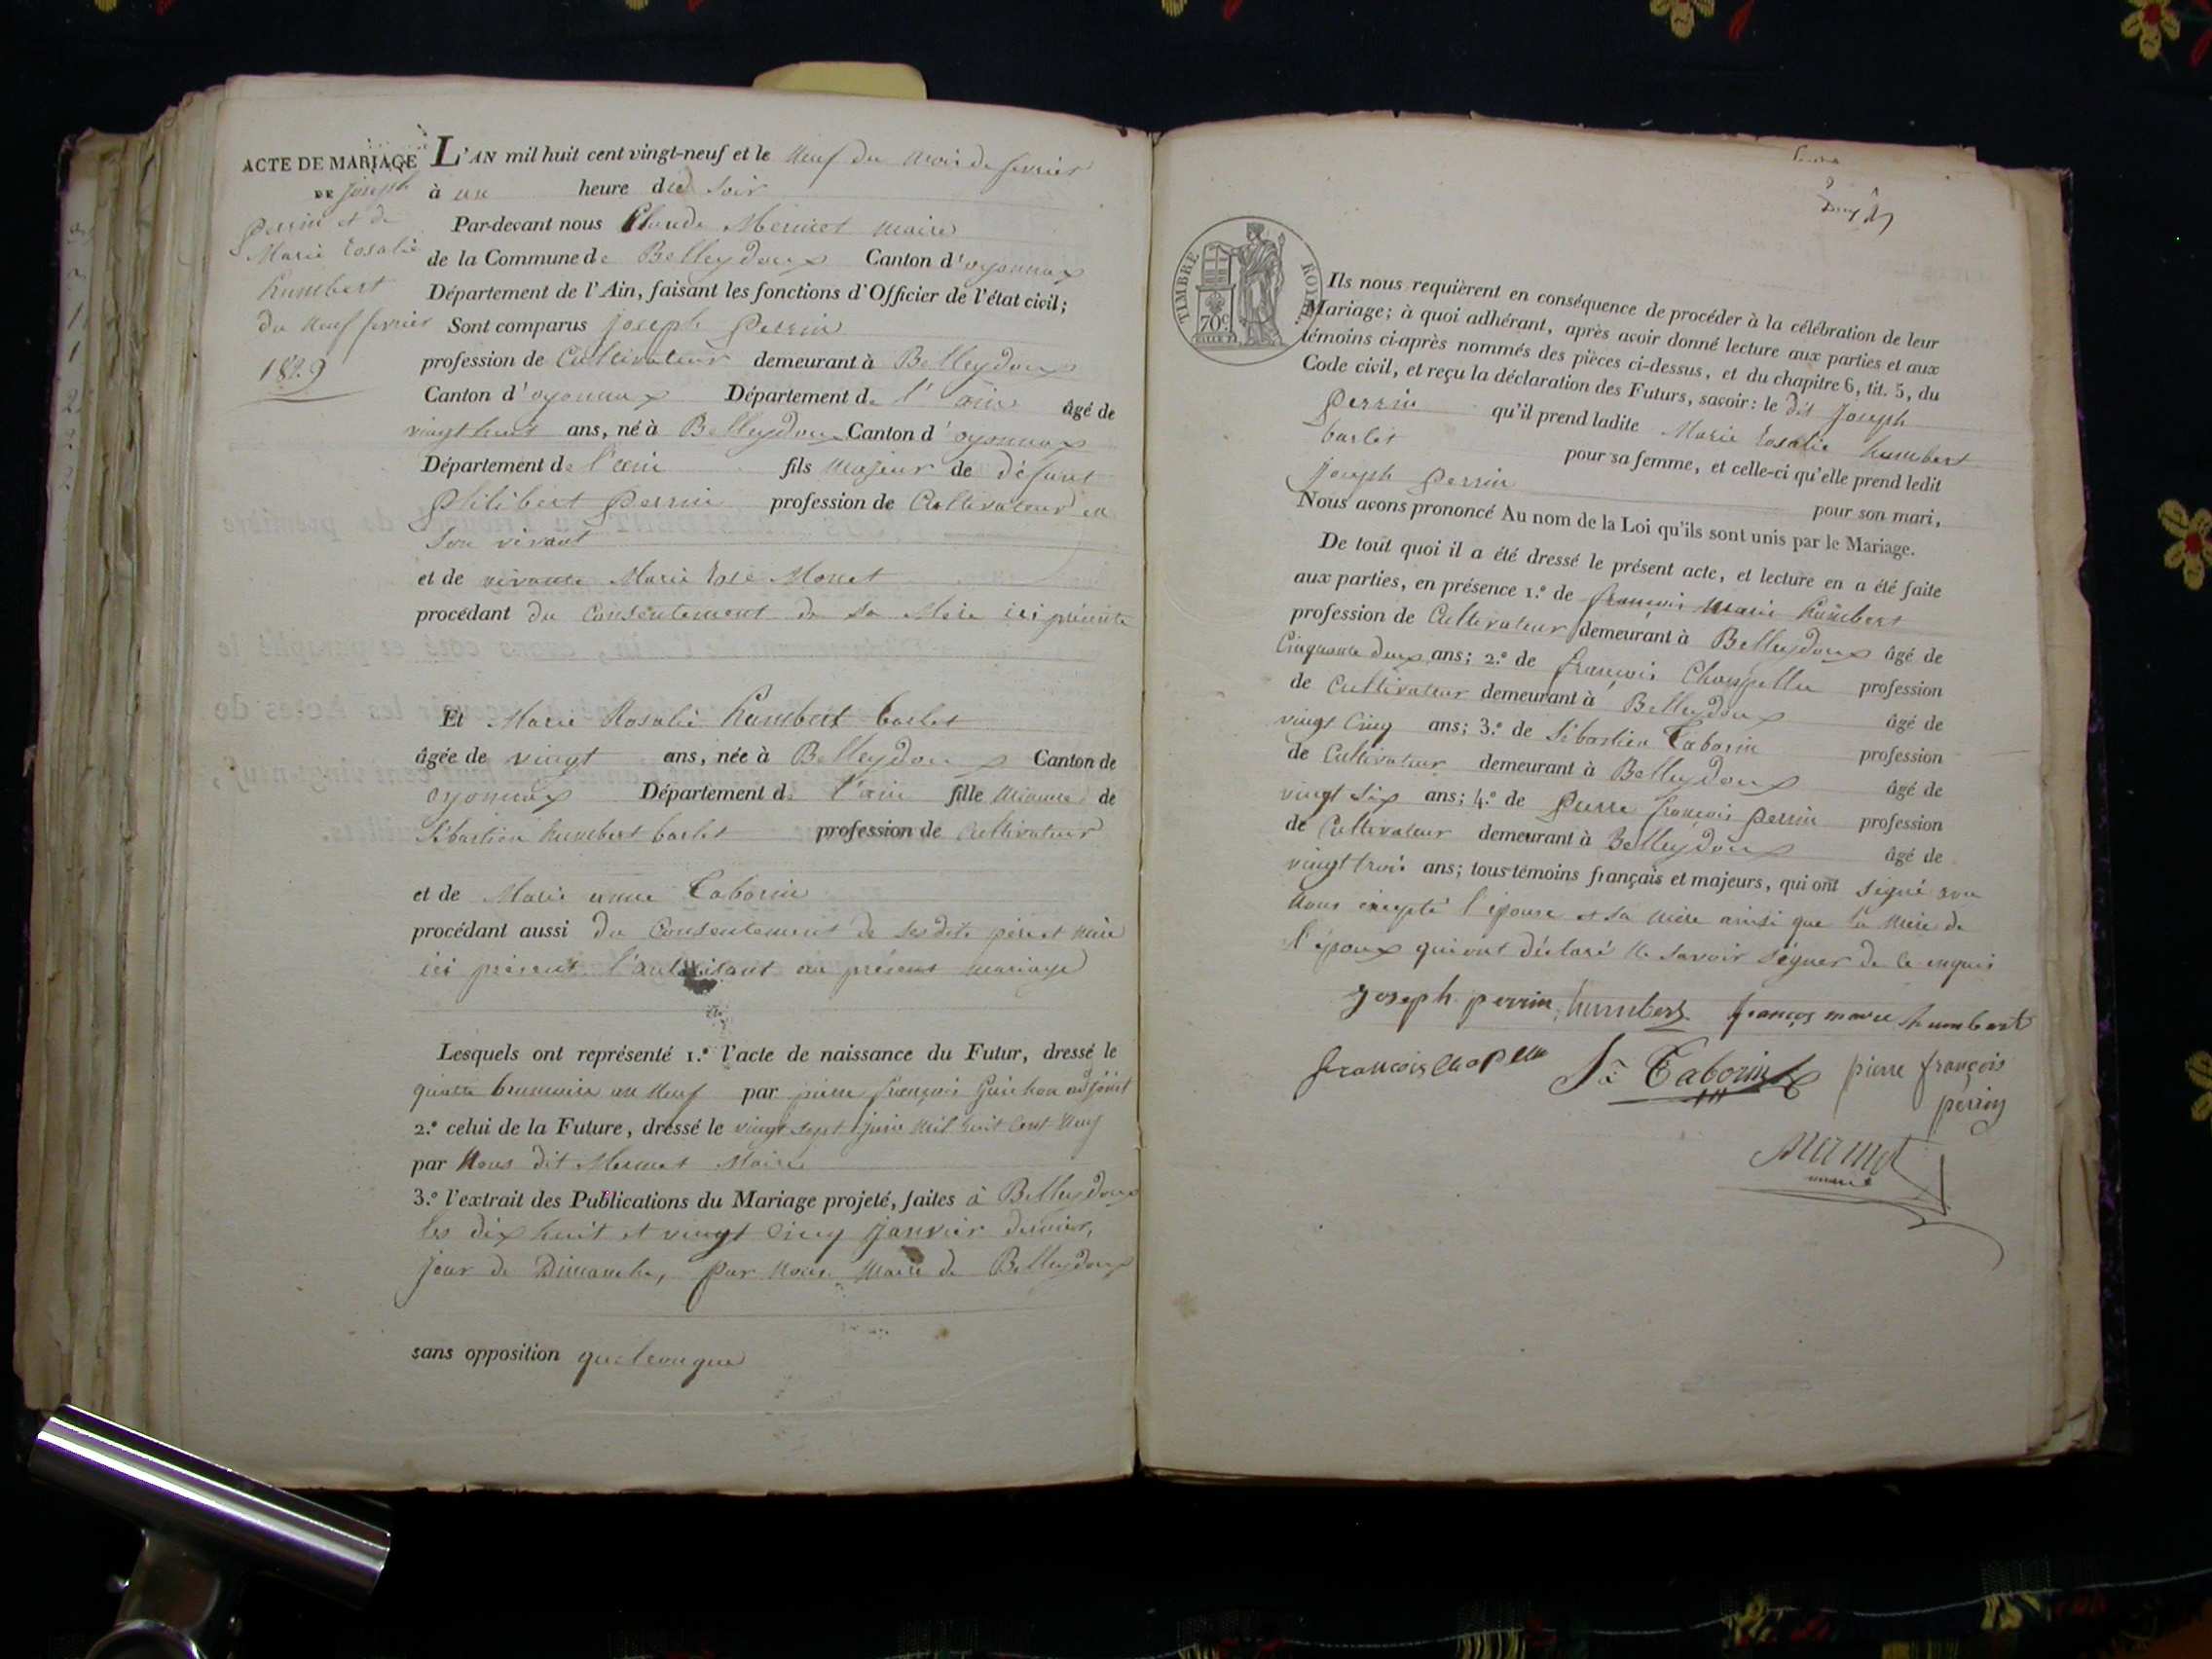 ACTE DE MARIAGE
DE Joseph
perrin et de
Marie Rosalie
humbert
du neuf fevrier
1829
L'AN mil huit cent vingt-neuf et le neuf du mois de fevrier
à une heure du soir
Par-devant nous Claude Mermet maire
de la Commune de Belleydoux Canton d'oyonnax
Département de l'Ain, faisant les fonctions d'Officier de l'état civil;
Sont comparus joseph perrin
profession de Cultivateur demeurant à Belleydoux
Canton d'oyonnax Département de l'ain âgé de
vingt huit ans, né à Belleydoux Canton d'oyonnax
Département de l'ain fils majeur de défunt
philibert perrin profession de Cultivateur en
son vivant
et de vivante Marie Rose Monet
procédant du Consentement de sa Mère ici présente
Et Marie Rosalie humbert barlet
âgée de vingt ans, née à Belleydoux Canton de
oyonnax Département de l'ain fille mineure de
Sébastien humbert barlet profession de Cultivateur
et de Marie anne Taborin
procédant aussi du Consentement de sesdits père et mère
ici présent l'autorisant au présent mariage
Lesquels ont représenté 1.º l'acte de naissance du Futur, dressé le
quatre brumaire an neuf par pierre françois Guichon adjoint
2.º celui de la Future, dressé le vingt sept juin mil huit cent neuf
par Nous dit Mermet Maire
3.º l'extrait des Publications du Mariage projeté, faites à Belleydoux
les dix huit et vingt cinq janvier dernier,
jour de Dimanche, par Nous Maire de Belleydoux
sans opposition quelconque
TIMBRE ROYAL
70c
Ils nous requièrent en conséquence de procéder à la célébration de leur
Mariage; à quoi adhérant, après avoir donné lecture aux parties et aux
témoins ci-après nommés des pièces ci-dessus, et du chapitre 6, tit. 5, du
Code civil, et reçu la déclaration des Futurs, savoir: le dit Joseph
perrin qu'il prend ladite Marie Rosalie humbert
barlet pour sa femme, et celle-ci qu'elle prend ledit
joseph perrin pour son mari,
Nous avons prononcé Au nom de la Loi qu'ils sont unis par le Mariage.
De tout quoi il a été dressé le présent acte, et lecture en a été faite
aux parties, en présence 1.º de françois Marie humbert
profession de Cultivateur demeurant à Belleydoux âgé de
Cinquante deux ans; 2.º de françois Chapellu profession
de Cultivateur demeurant à Belleydoux âgé de
vingt cinq ans; 3.º de Sébastien Taborin profession
de Cultivateur demeurant à Belleydoux âgé de
vingt six ans; 4.º de pierre françois perrin profession
de Cultivateur demeurant à Belleydoux âgé de
vingt trois ans; tous témoins français et majeurs, qui ont signé avec
Nous excepté l'épouse et sa mère ainsi que la mère de
l'époux qui ont déclaré ne savoir signer de ce enquis
joseph perrin humbert françois marie humbert
françois S. Taborin pierre françois
perrin
Mermet
maire